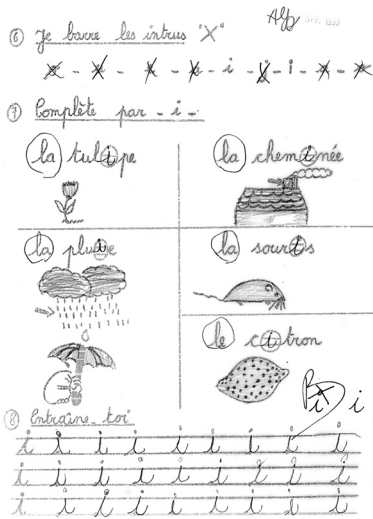 ⑥ Je barre les intrus "X"
- - - - i - - i - -
⑦ Complète par - i -
la tulipe
la cheminée
la pluie
la souris
le citron
i i
⑧ Entraîne-toi
i i i i i i i i i
i i i i i i i i i
i i i i i i i i i